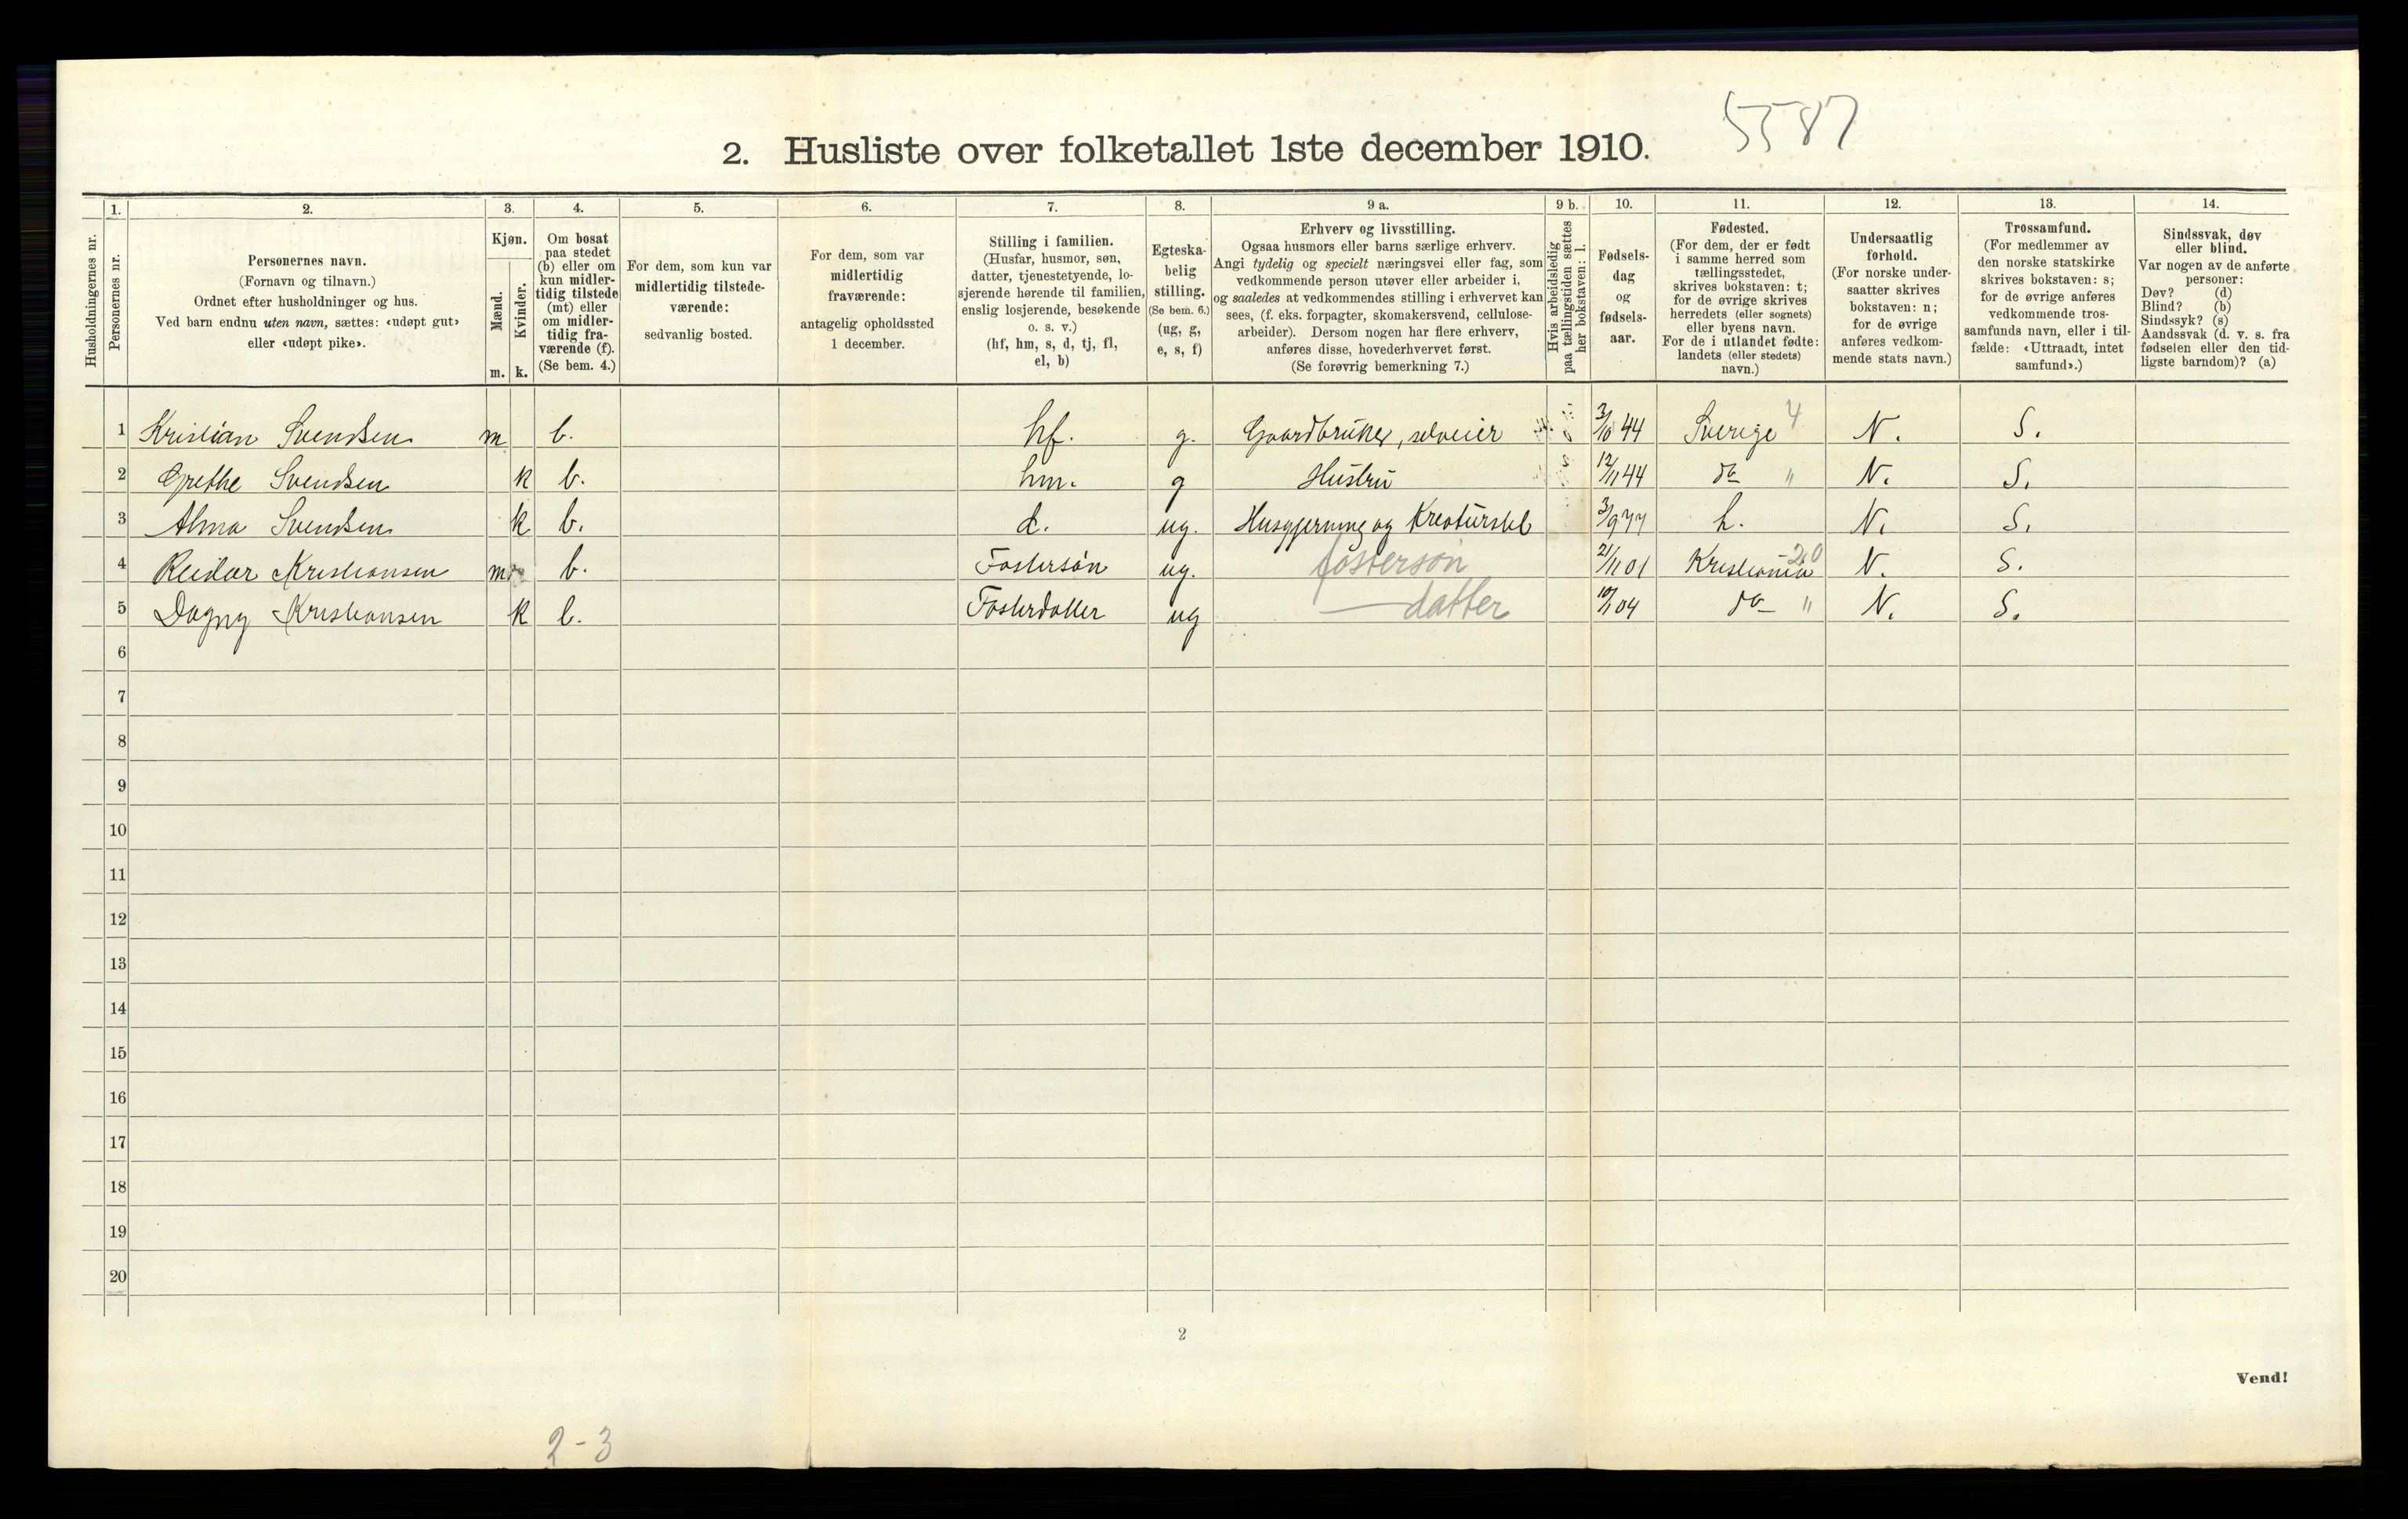 5587
2. Husliste over folketallet 1ste december 1910.
1. 2. 3. 4. 5. 6. 7. 8. 9 a. 9 b. 10. 11. 12. 13. 14.
Husholdningernes nr.
Personernes nr.
Personernes navn.
(Fornavn og tilnavn.)
Ordnet efter husholdninger og hus.
Ved barn endnu uten navn, sættes: «udøpt gut»
eller «udøpt pike».
Kjøn.
Mænd.
Kvinder.
m. k.
Om bosat
paa stedet
(b) eller om
kun midler-
tidig tilstede
(mt) eller
om midler-
tidig fra-
værende (f).
(Se bem. 4.)
For dem, som kun var
midlertidig tilstede-
værende:
sedvanlig bosted.
For dem, som var
midlertidig
fraværende:
antagelig opholdssted
1 december.
Stilling i familien.
(Husfar, husmor, søn,
datter, tjenestetyende, lo-
sjerende hørende til familien,
enslig losjerende, besøkende
o. s. v.)
(hf, hm, s, d, tj, fl,
el, b)
Egteska-
belig
stilling.
(Se bem. 6.)
(ug, g,
e, s, f)
Erhverv og livsstilling.
Ogsaa husmors eller barns særlige erhverv.
Angi tydelig og specielt næringsvei eller fag, som
vedkommende person utøver eller arbeider i,
og saaledes at vedkommendes stilling i erhvervet kan
sees, (f. eks. forpagter, skomakersvend, cellulose-
arbeider). Dersom nogen har flere erhverv,
anføres disse, hovederhvervet først.
(Se forøvrig bemerkning 7.)
Hvis arbeidsledig
paa tællingstiden sættes
her bokstaven: l.
Fødsels-
dag
og
fødsels-
aar.
Fødested.
(For dem, der er født
i samme herred som
tællingsstedet,
skrives bokstaven: t;
for de øvrige skrives
herredets (eller sognets)
eller byens navn.
For de i utlandet fødte:
landets (eller stedets)
navn.)
Undersaatlig
forhold.
(For norske under-
saatter skrives
bokstaven: n;
for de øvrige
anføres vedkom-
mende stats navn.)
Trossamfund.
(For medlemmer av
den norske statskirke
skrives bokstaven: s;
for de øvrige anføres
vedkommende tros-
samfunds navn, eller i til-
fælde: «Uttraadt, intet
samfund».)
Sindssvak, døv
eller blind.
Var nogen av de anførte
personer:
Døv? (d)
Blind? (b)
Sindssyk? (s)
Aandssvak (d. v. s. fra
fødselen eller den tid-
ligste barndom)? (a)
1 Kristian Svendsen m b. hf. g. Gaardbruker, selveier 3/10 44 Sverige 4 N. S.
2 Grethe Svendsen k b. hm. g Hustru 12/11 44 do " N. S.
3 Alma Svendsen k b. d. ug. Husgjerning og Kreaturstel 3/9 77 t. N. S.
4 Reidar Kristiansen m b. Fostersön ug. fosterson 21/11 01 Kristiania 20 N. S.
5 Dagny Kristiansen k b. Fosterdatter ug — datter 10/1 04 do " N. S.
6
7
8
9
10
11
12
13
14
15
16
17
18
19
20
2
Vend!
2-3